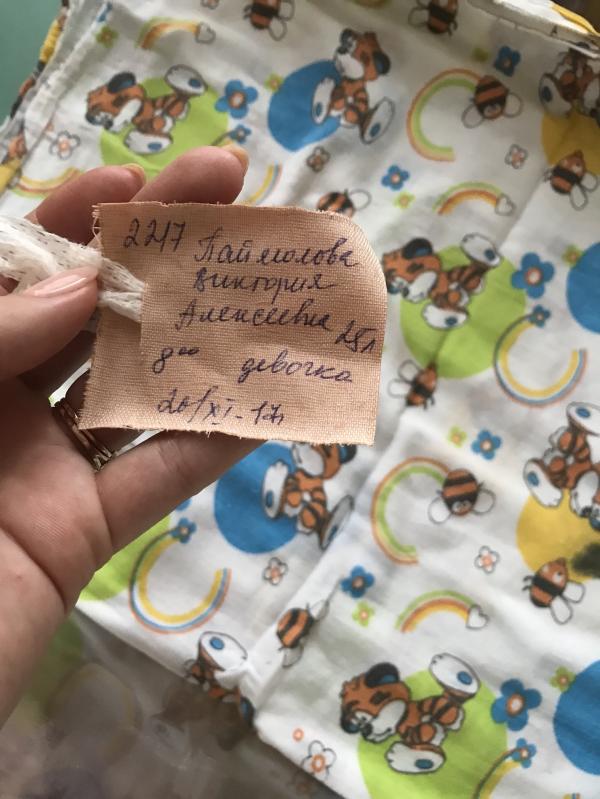 2217 Паймолова
Виктория
Алексеевна 25л
8⁰⁰ девочка
20/XI-17г